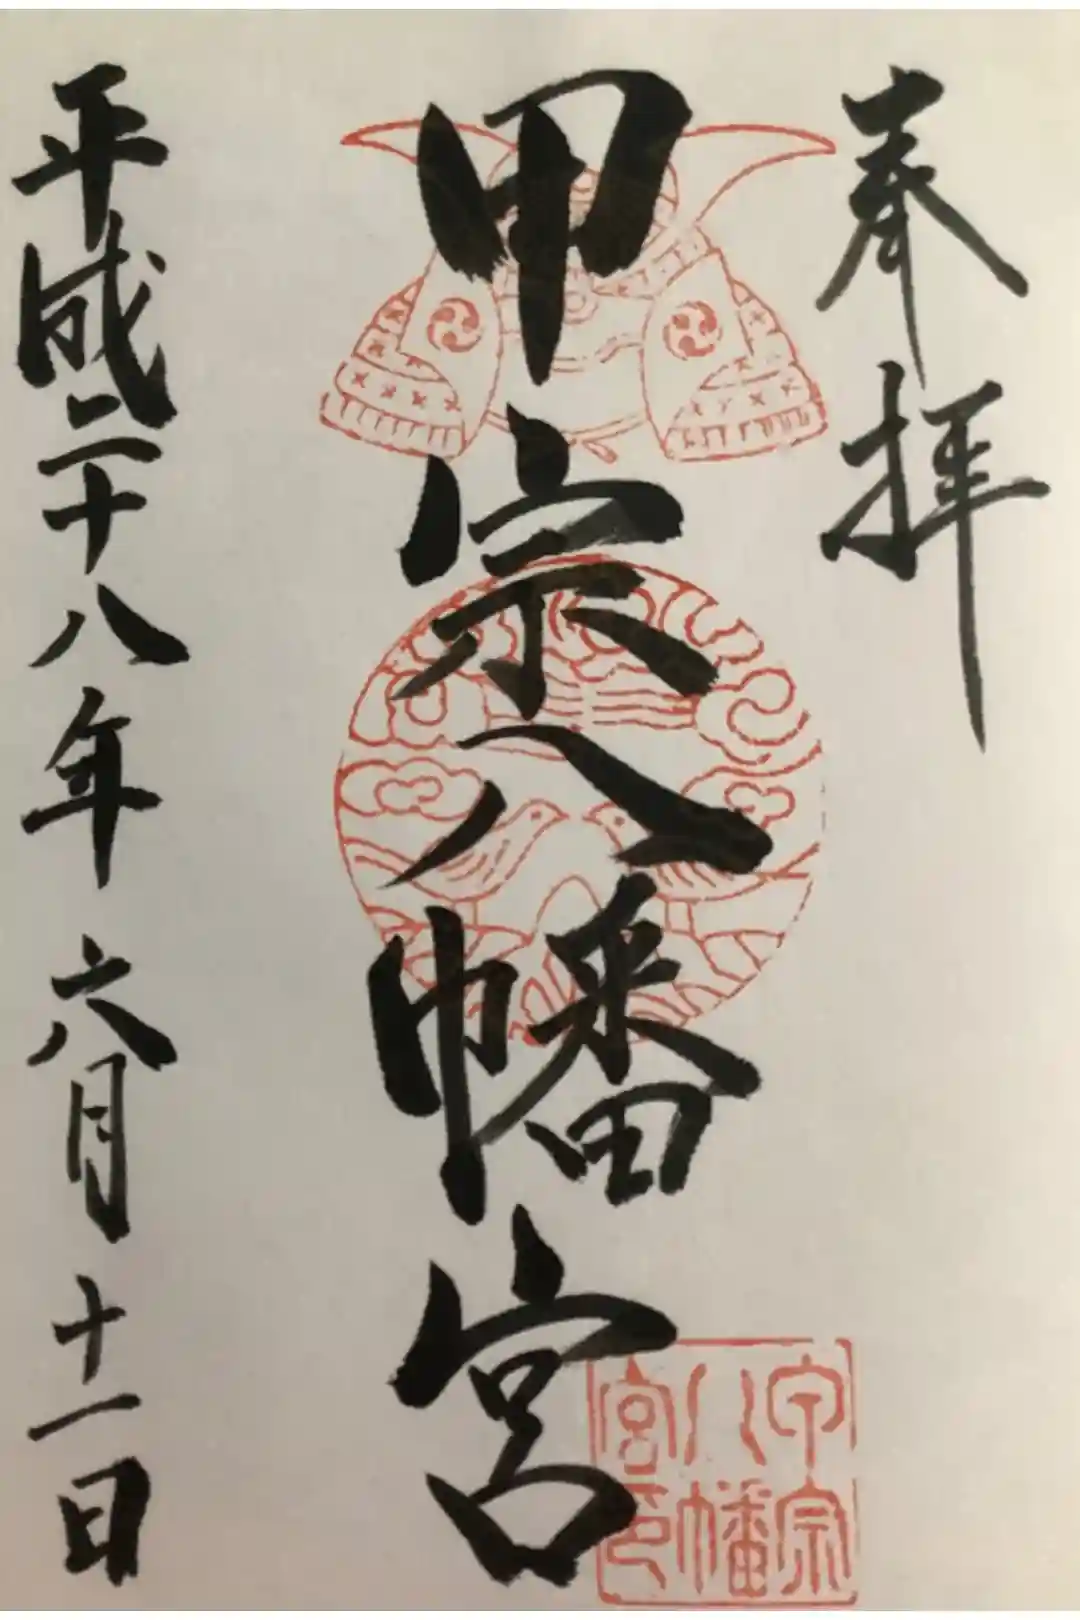 奉拝
甲宗八幡宮
平成二十八年 六月十一日
甲宗
八幡
宮印